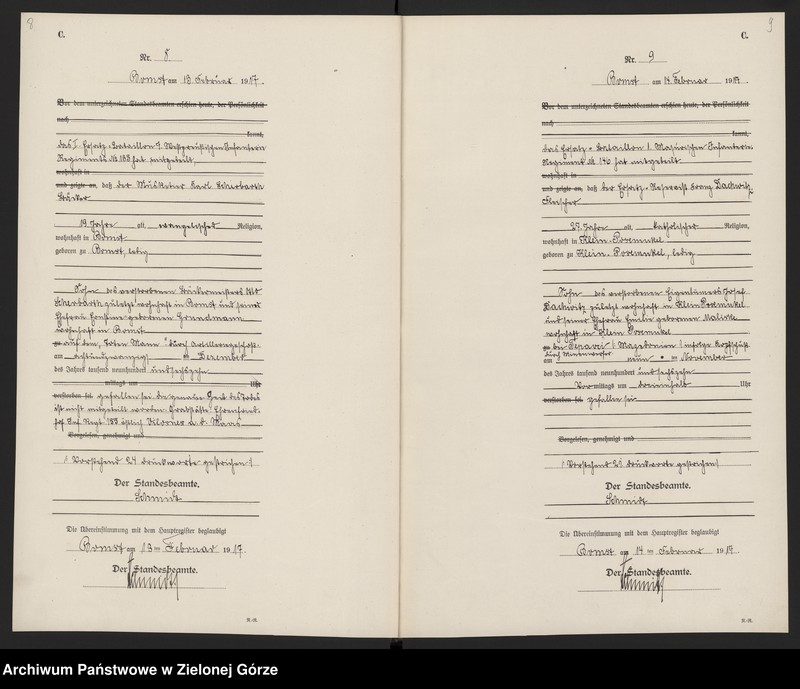 8
C.
Nr. 8
Bomst am 13 Februar 1917.
Vor dem unterzeichneten Standesbeamten erschien heute, der Persönlichkeit
nach
kannt,
das I. Ersatz-Bataillon 9. Westpreußischen Infanterie
Regiments No 155 hat mitgeteilt
wohnhaft in
und zeigte an, daß der Musketier Karl Scherbarth
19 Jahre alt, evangelischer Religion,
wohnhaft in Bomst
geboren zu Bomst, ledig
Sohn des verstorbenen
Scherbarth zuletzt wohnhaft in Bomst und seiner
Ehefrau geborenen Grundmann
wohnhaft in Bomst
zu auf dem "Toten Mann" durch Artilleriegeschoß
am achtundzwanzig ten Dezember
des Jahres tausend neunhundert und sechszehn
mittags um Uhr
verstorben sei. gefallen sei. die genaue Zeit des Todes
ist nicht mitgeteilt worden. Grabstätte: Ehrenfried-
hof Inf. Regt. 155 a. d. Maas
Vorgelesen, genehmigt und
/: Vorstehend 24 Druckworte gestrichen:/
Der Standesbeamte.
Schmidt
Die Übereinstimmung mit dem Hauptregister beglaubigt
Bomst am 13 ten Februar 1917.
Der Standesbeamte.
Schmidt
R.-R.
9
C.
Nr. 9
Bomst am 14. Februar 1917.
Vor dem unterzeichneten Standesbeamten erschien heute, der Persönlichkeit
nach
kannt,
das Ersatz-Bataillon 1. Masurischen Infanterie
Regiment No 146 hat mitgeteilt
wohnhaft in
und zeigte an, daß der Ersatz-Reservist Franz Dachwitz,
Fleischer
27 Jahre alt, katholischer Religion,
wohnhaft in Klein-Posemukel
geboren zu Klein-Posemukel, ledig
Sohn des verstorbenen Eigentümers Josef
Dachwitz zuletzt wohnhaft in Klein Posemukel
und seiner Ehefrau Emilie geborenen
wohnhaft in Klein Posemukel
zu bei (Mazedonien) infolge Kopfschuß
durch Minenwerfer
am neun ten November
des Jahres tausend neunhundert und sechszehn
Vormittags um dreieinhalb Uhr
verstorben sei. gefallen sei
Vorgelesen, genehmigt und
/: Vorstehend Druckworte gestrichen:/
Der Standesbeamte.
Schmidt
Die Übereinstimmung mit dem Hauptregister beglaubigt
Bomst am 14 ten Februar 1917.
Der Standesbeamte.
Schmidt
R.-R.
Archiwum Państwowe w Zielonej Górze